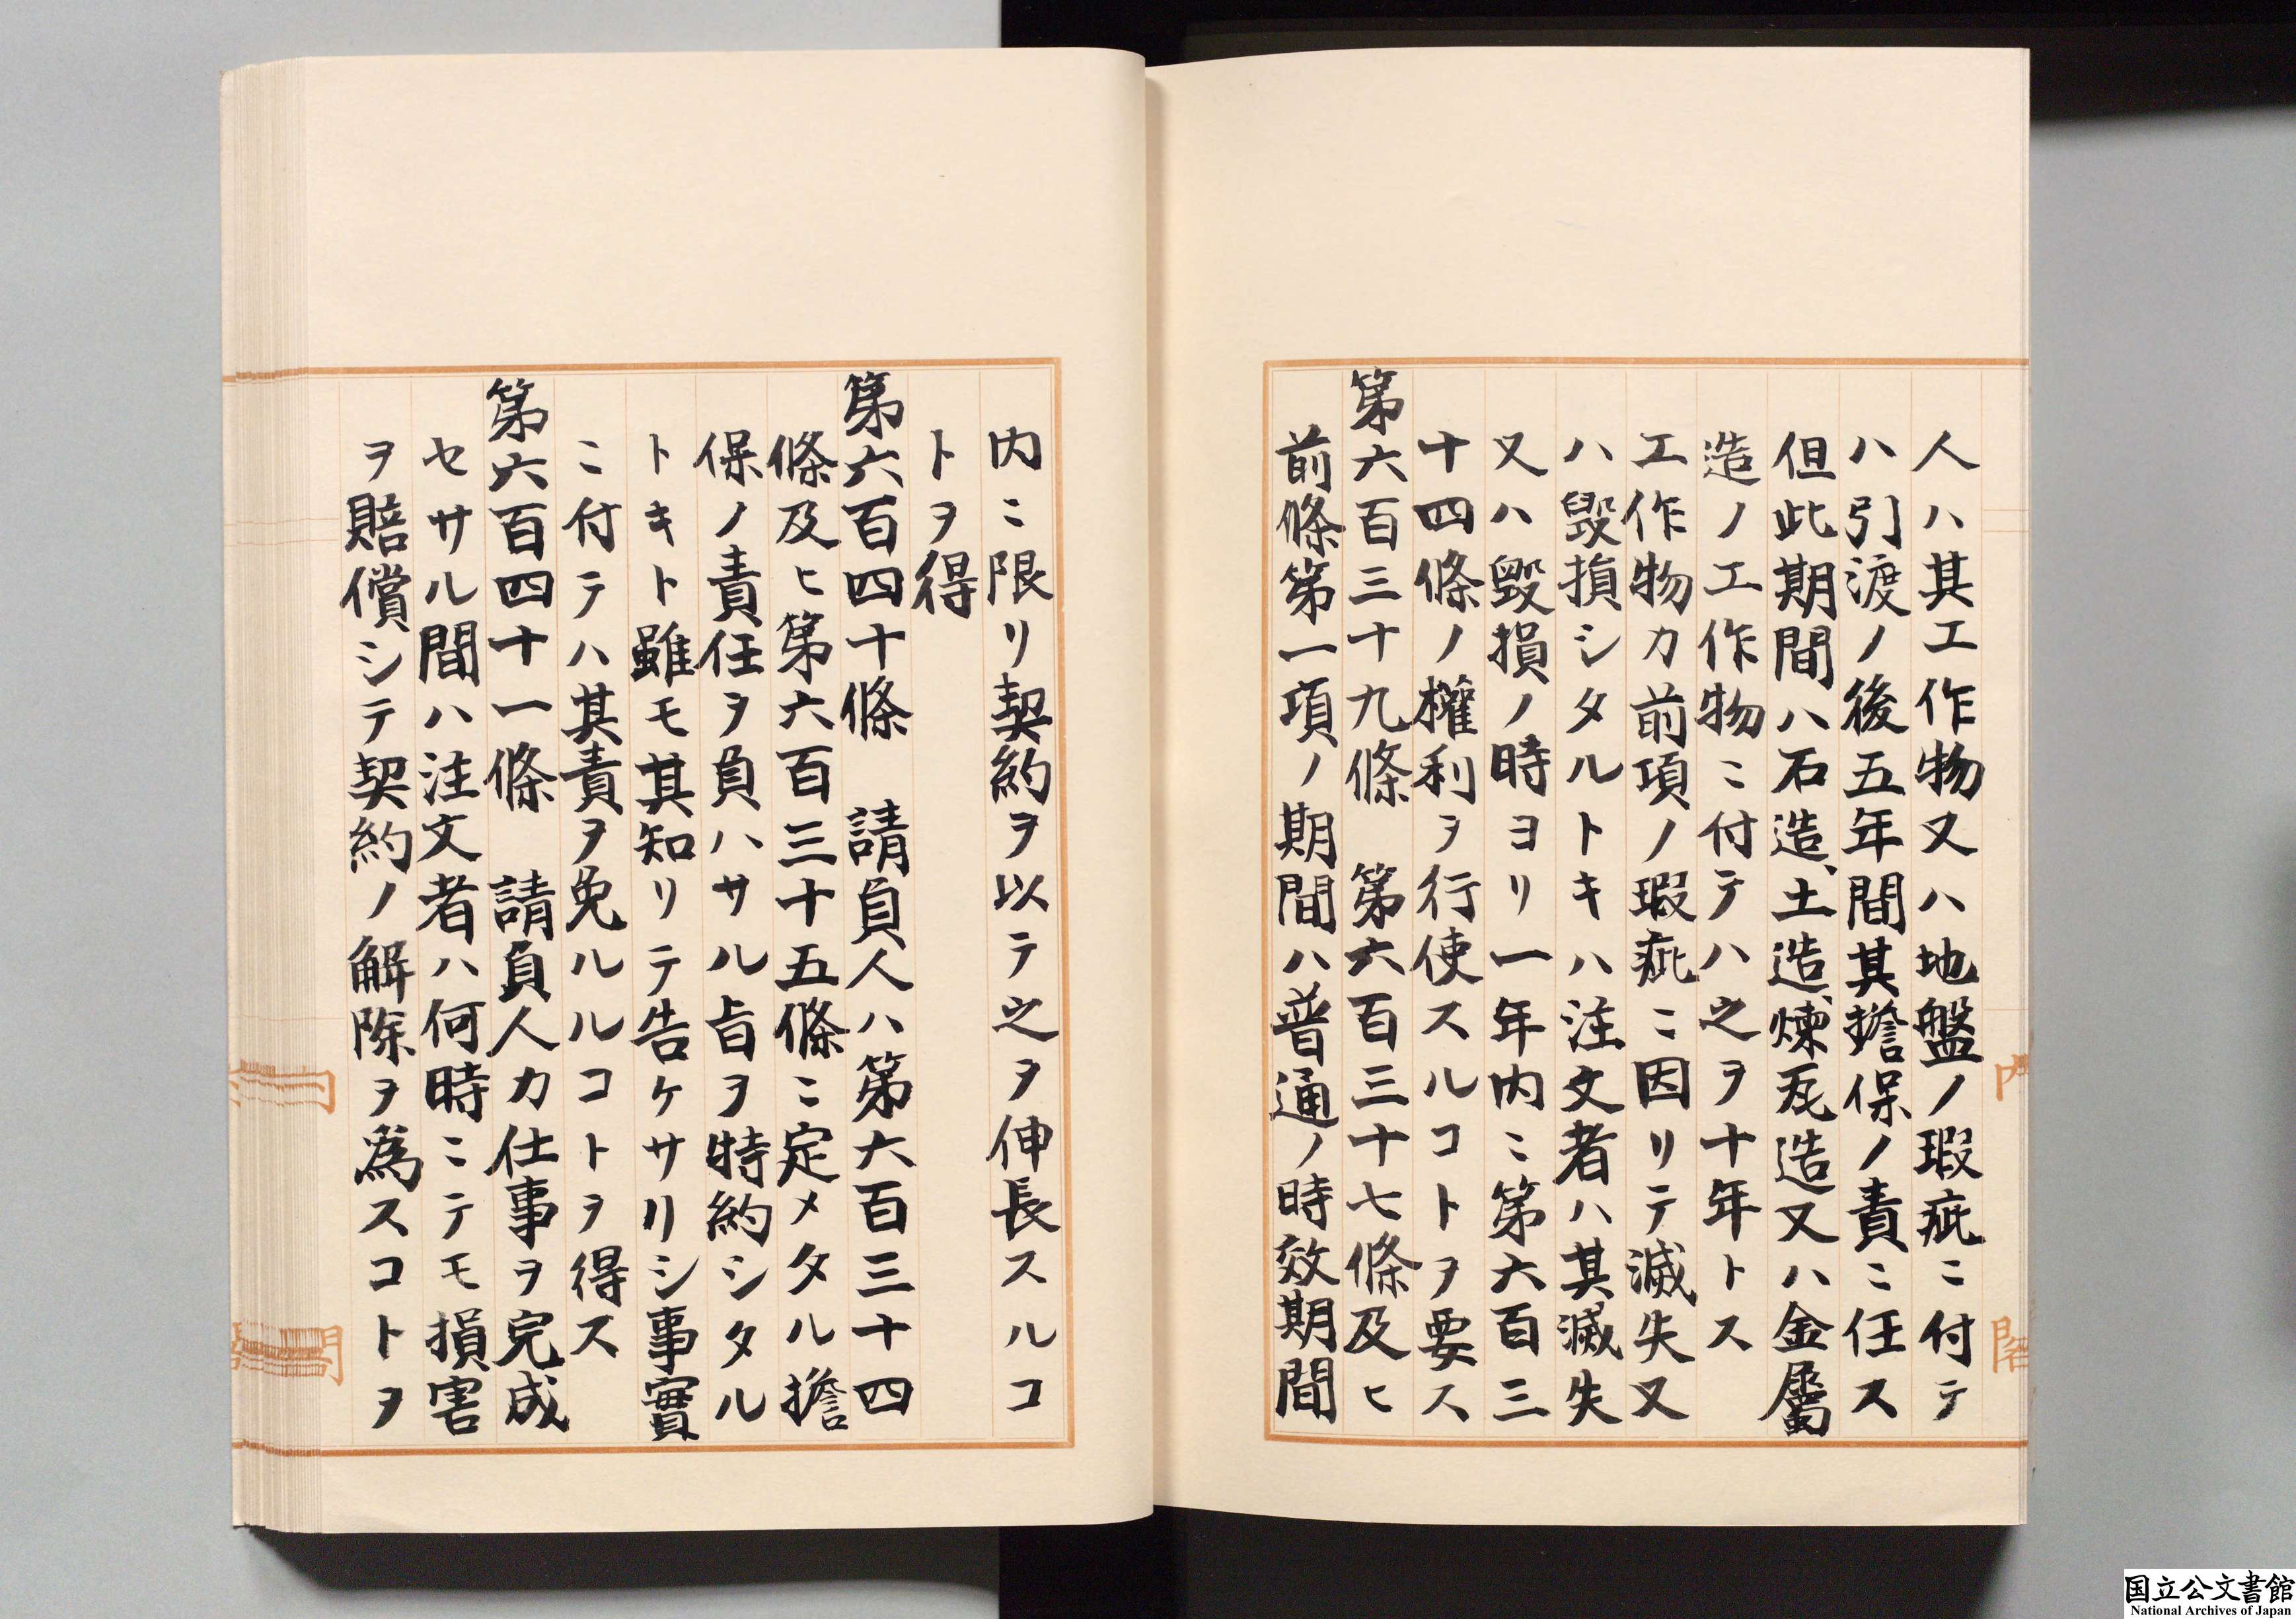 人ハ其工作物又ハ地盤ノ瑕疵ニ付テ
ハ引渡ノ後五年間其擔保ノ責ニ任ス
但此期間ハ石造、土造、煉瓦造又ハ金屬
造ノ工作物ニ付テハ之ヲ十年トス
工作物カ前項ノ瑕疵ニ因リテ滅失又
ハ毀損シタルトキハ注文者ハ其滅失
又ハ毀損ノ時ヨリ一年內ニ第六百三
十四條ノ權利ヲ行使スルコトヲ要ス
第六百三十九條　第六百三十七條及ヒ
前條第一項ノ期間ハ普通ノ時效期間
內ニ限リ契約ヲ以テ之ヲ伸長スルコ
トヲ得
第六百四十條　請負人ハ第六百三十四
條及ヒ第六百三十五條ニ定メタル擔
保ノ責任ヲ負ハサル旨ヲ特約シタル
トキト雖モ其知リテ告ケサリシ事實
ニ付テハ其責ヲ免ルルコトヲ得ス
第六百四十一條　請負人カ仕事ヲ完成
セサル間ハ注文者ハ何時ニテモ損害
ヲ賠償シテ契約ノ解除ヲ爲スコトヲ
內
閣
国立公文書館
National Archives of Japan